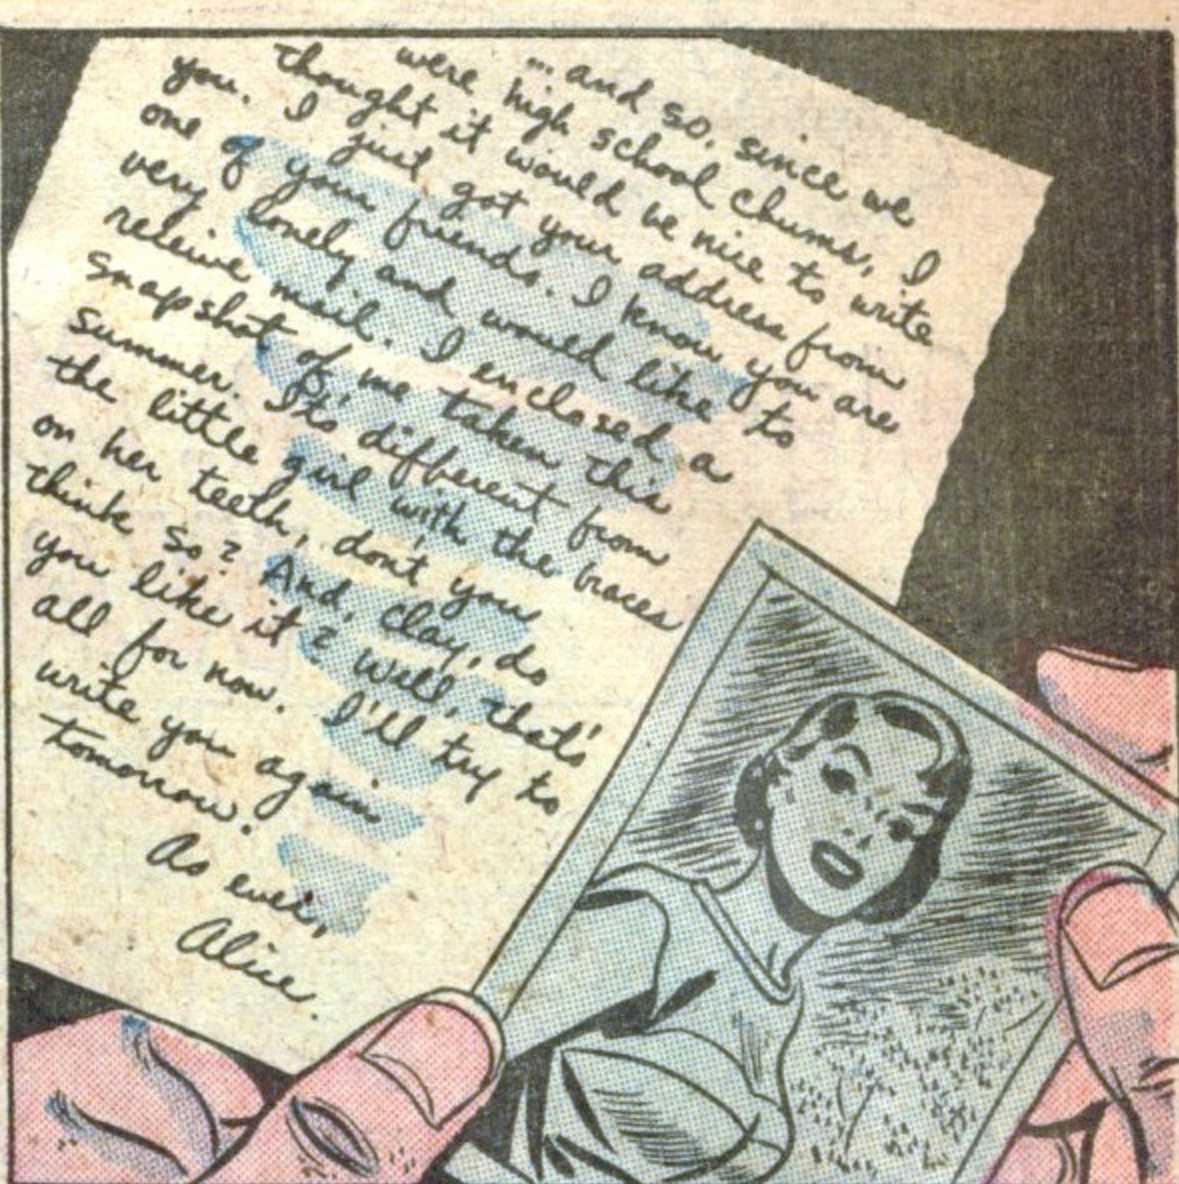 ... and so, since we
were high school chums, I
thought it would be nice to write
you. I just got your address from
one of your friends. I know you are
very lonely and would like to
receive mail. I enclosed a
snapshot of me taken this
summer. It's different from
the little girl with the braces
on her teeth, don't you
think so? And, Clay, do
you like it? Well, that's
all for now. I'll try to
write you again
tomorrow.
As ever,
Alice.